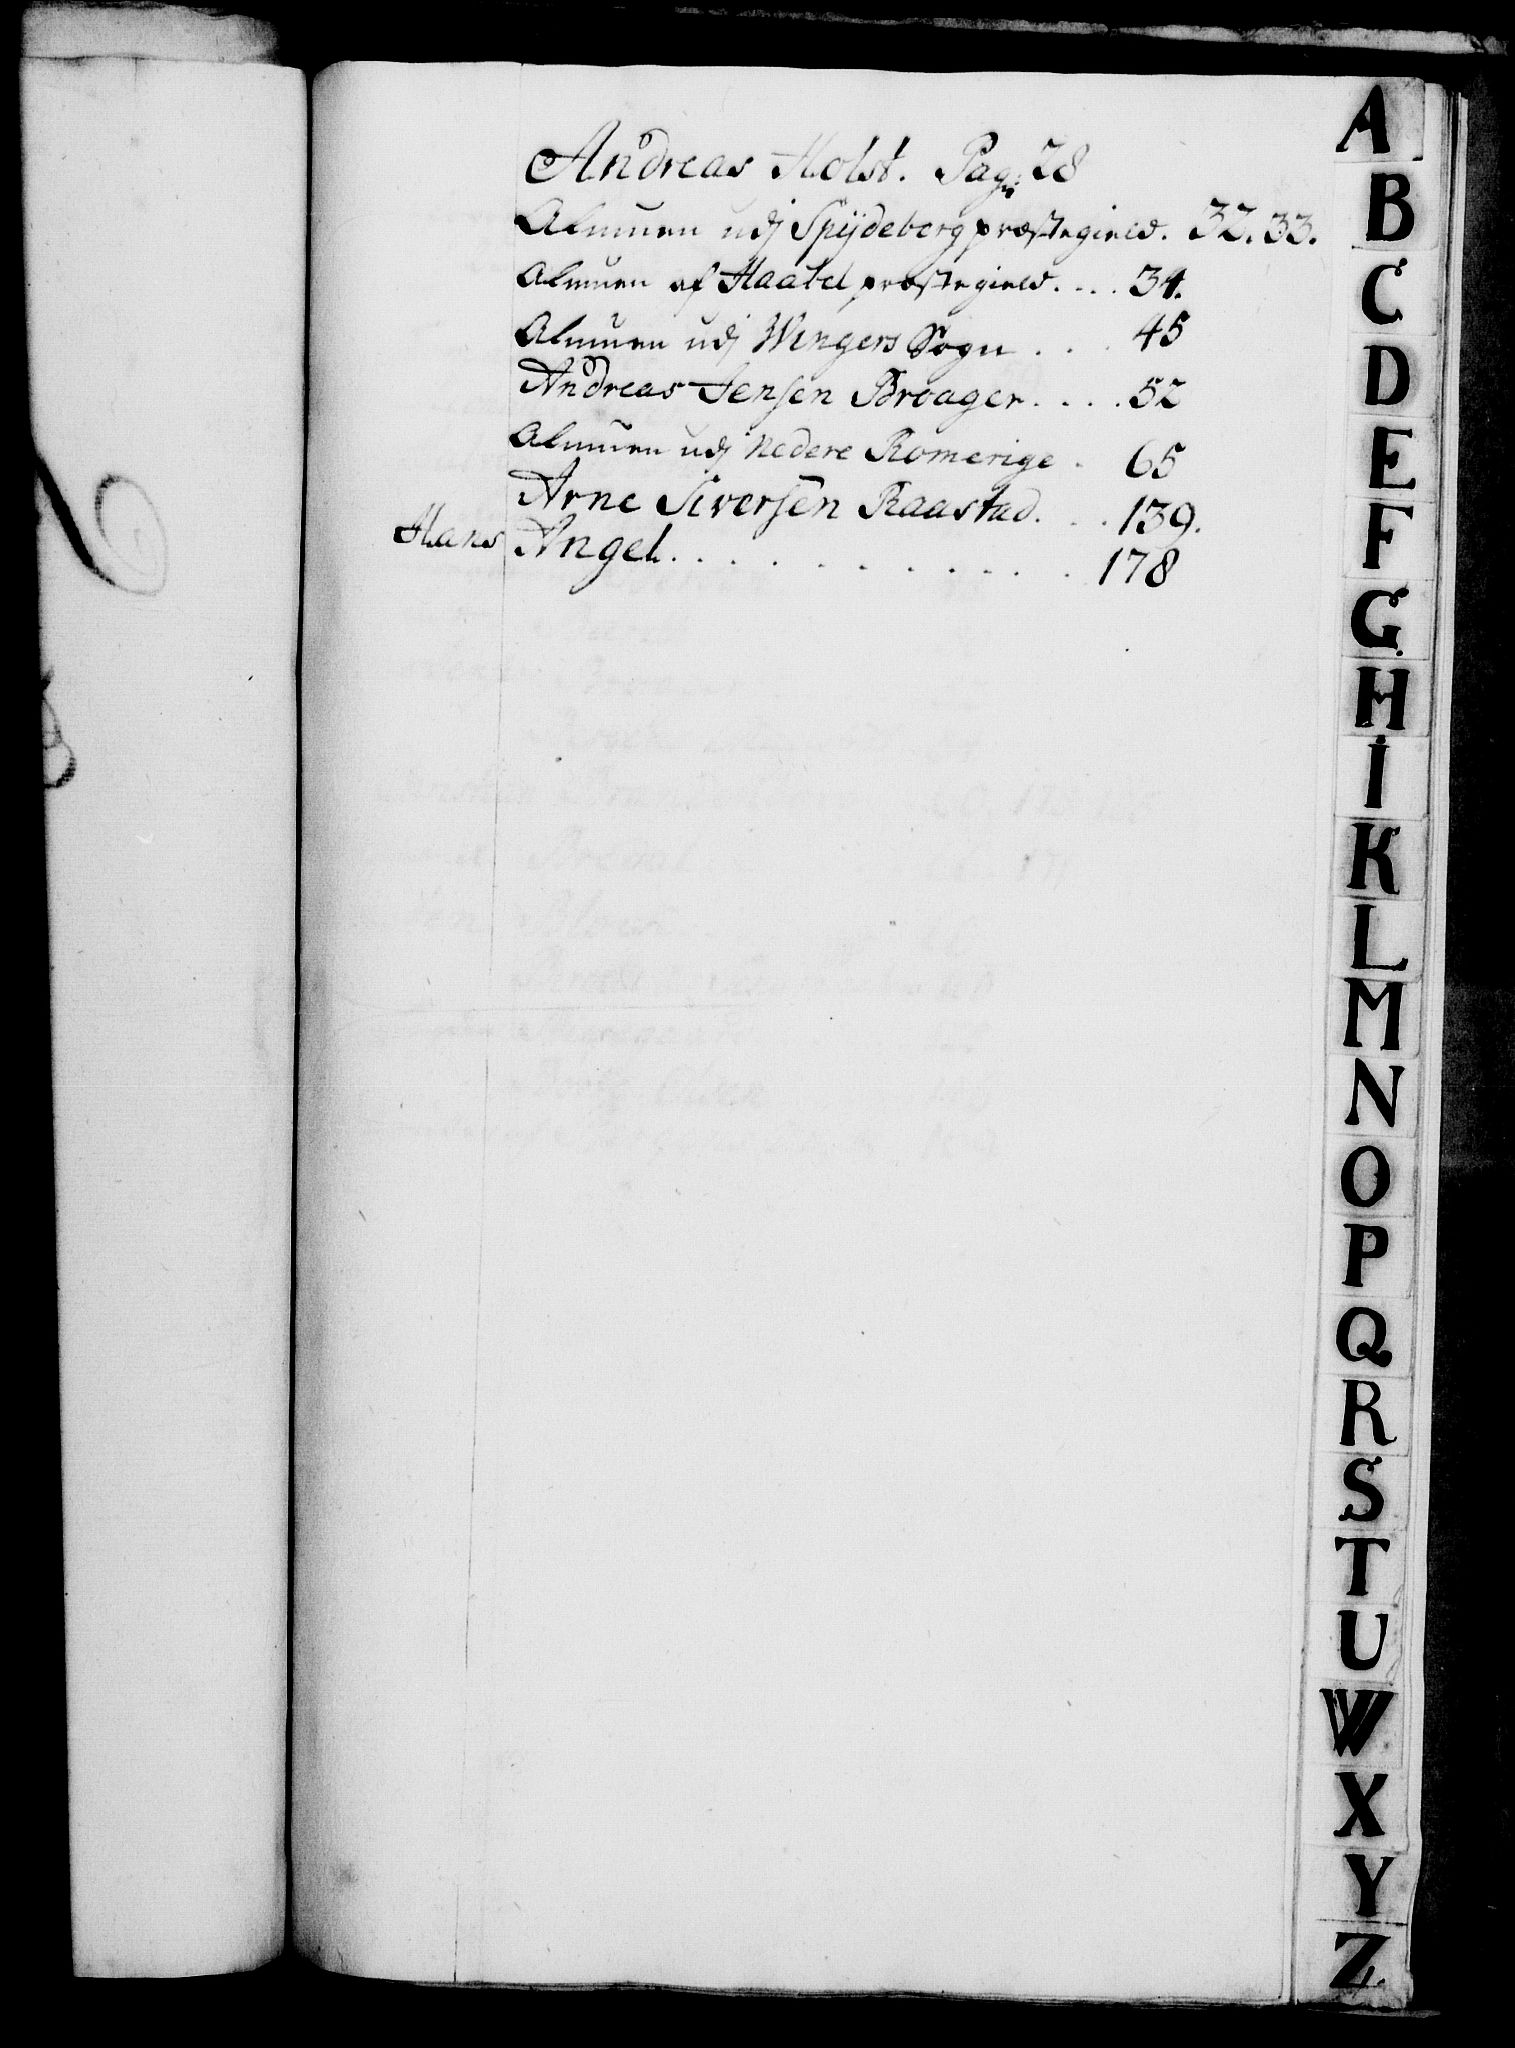 Andreas Holst. Pag: 28
Almuen udj Spydeberg præstegield. 32. 33.
Almuen af præstegield. . . . 34.
Almuen udj Wingers Sogn . . . 45
Andreas Jensen Broager. . . . . 52
Almuen udj Nedere Romerige . 65
Arne Siversen Raastad. . . . 139.
Hans Angel. . . . . . . . . . . 178
A
B
C
D
E
F
G
H
I
K
L
M
N
O
P
Q
R
S
T
U
W
X
Y
Z